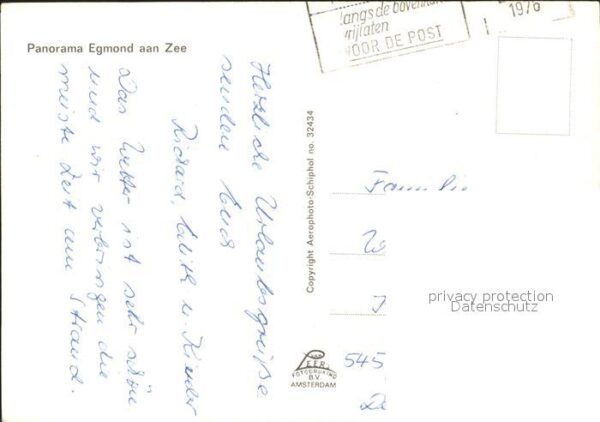 Panorama Egmond aan Zee
langs de bovenkant
vrijlaten
VOOR DE POST
1976
Herzliche Urlaubsgrüße
senden Euch
Richard, Edith u. Kinder
Das Wetter ist sehr schön
und wir verbringen die
meiste Zeit am Strand.
Copyright Aerophoto-Schiphol no. 32434
Familie
W
J
545
De
privacy protection
Datenschutz
VAN
LEER
FOTODRUKIND
B.V
AMSTERDAM